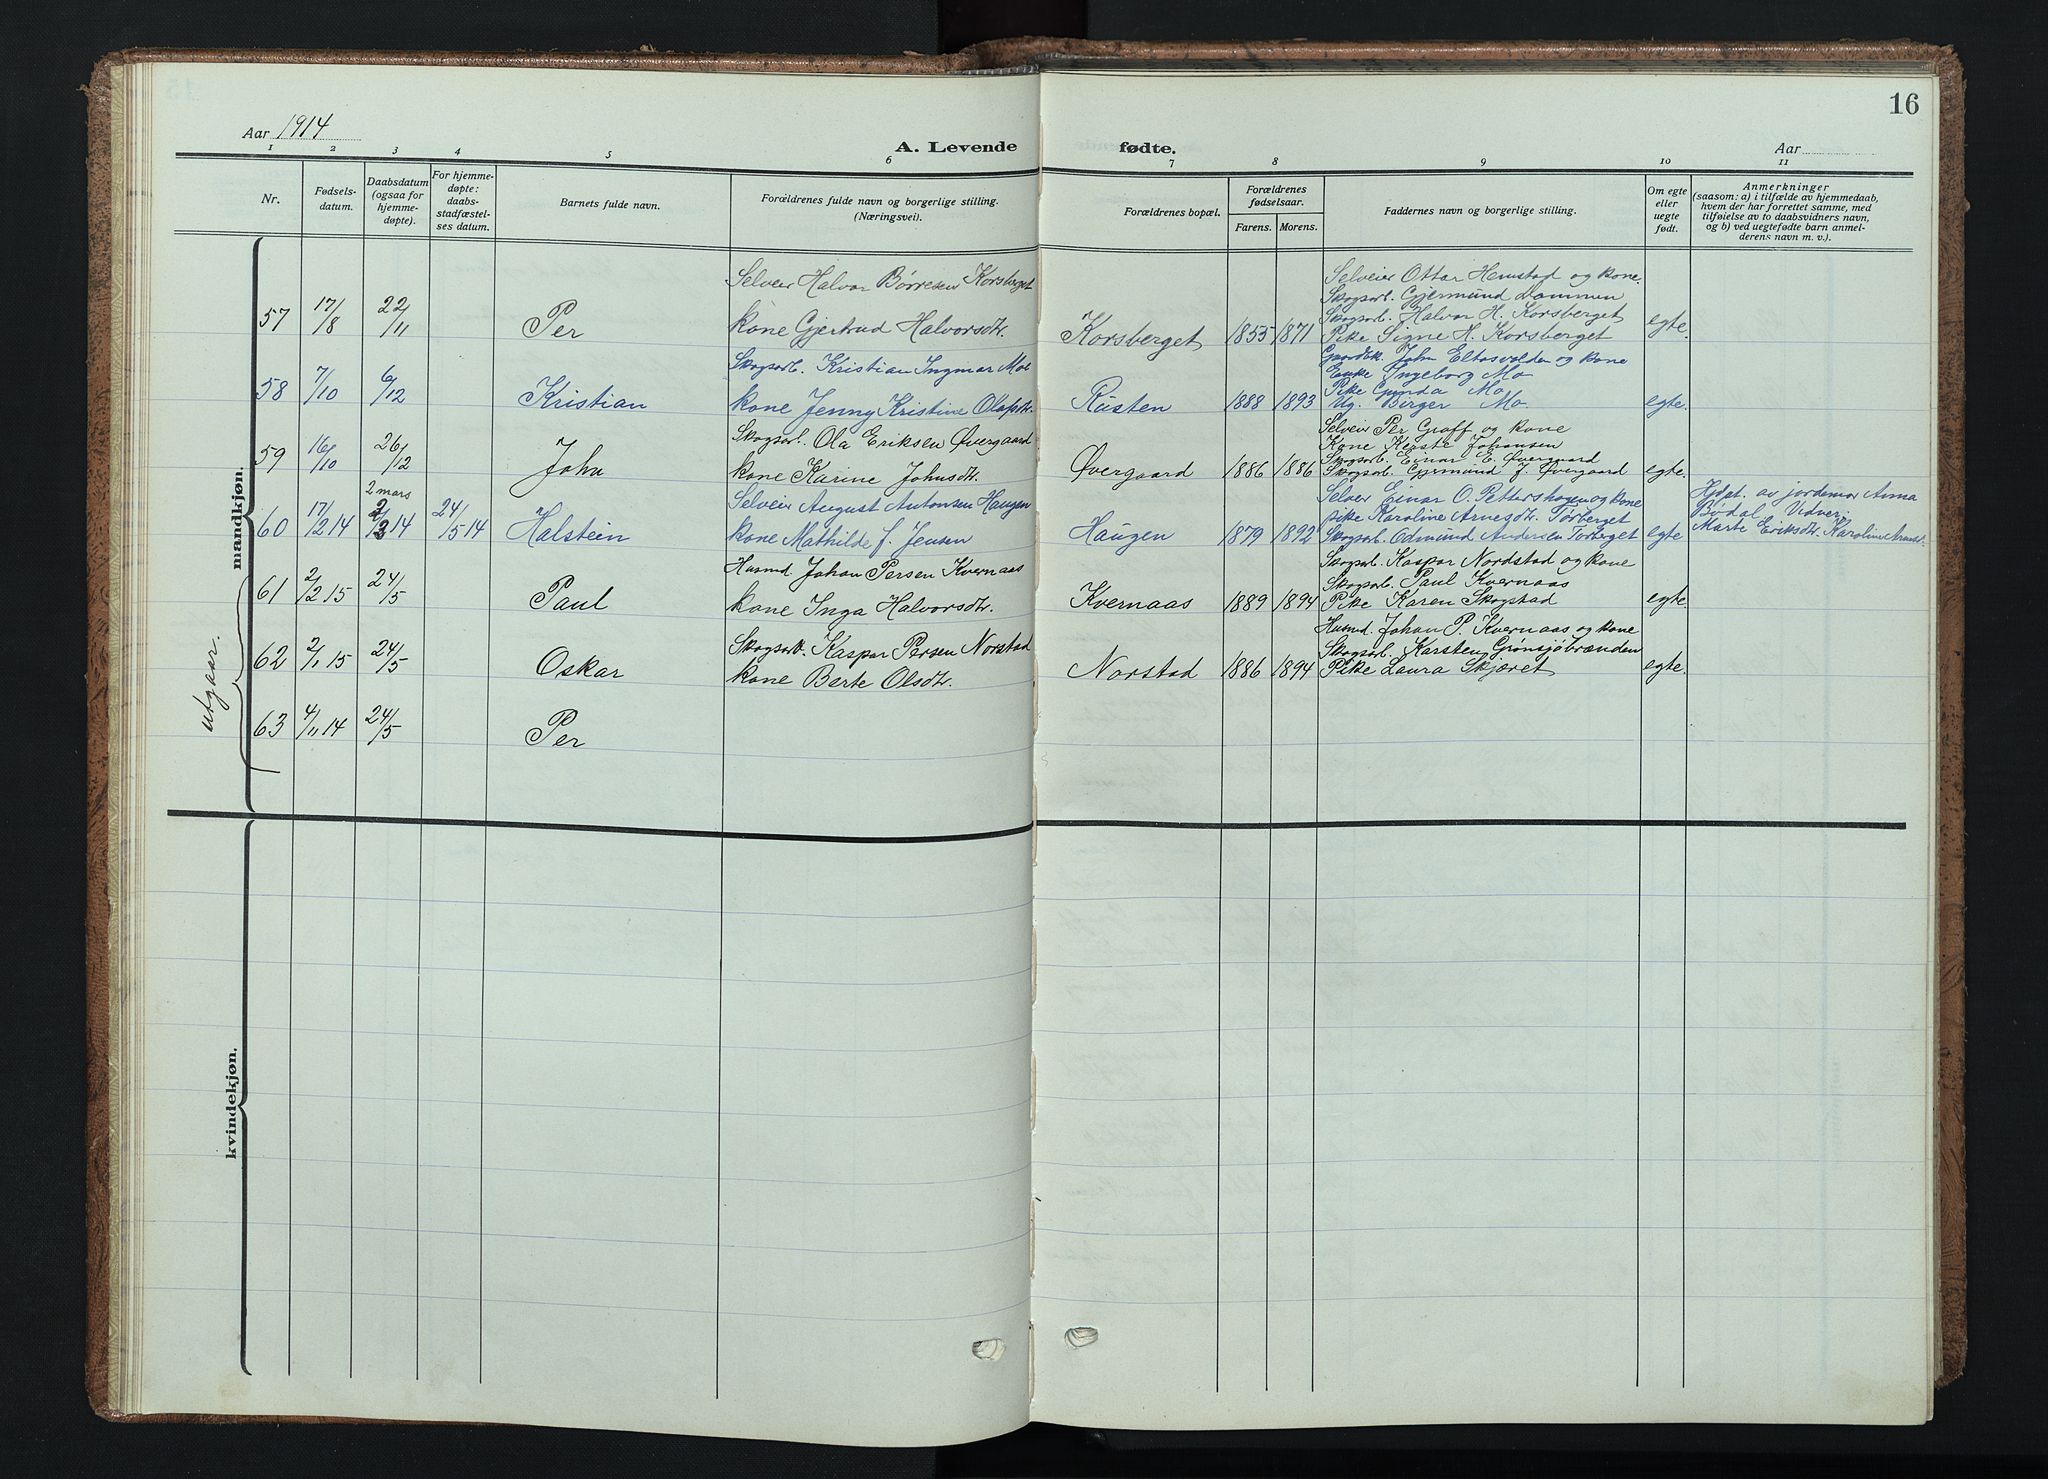 16
Aar 1914
A. Levende fødte.
Aar
1 2 3 4 5 6 7 8 9 10 11
Nr.
Fødsels-
datum.
Daabsdatum
(ogsaa for
hjemme-
døpte).
For hjemme-
døpte:
daabs-
stadfæstel-
ses datum.
Barnets fulde navn.
Forældrenes fulde navn og borgerlige stilling.
(Næringsvei).
Forældrenes bopæl.
Forældrenes
fødselsaar.
Farens. Morens.
Faddernes navn og borgerlige stilling.
Om egte
eller
uegte
født.
Anmerkninger
(saasom: a) i tilfælde av hjemmedaab,
hvem der har forrettet samme, med
tilføielse av to daabsvidners navn,
og b) ved uegtefødte barn anmel-
derens navn m. v.).
mandkjøn.
57 17/8 22/11 Per
Selveier Halvor Børresen Korsberget
kone Gjertrud Halvorsdtr.
Korsberget 1855 1871
Selveier Ottar Hemstad og kone
Skogsarb. Gjermund Lommen
Skogsarb. Halvor H. Korsberget
Pike Signe H. Korsberget
egte.
58 7/10 6/12 Kristian
Skogsarb. Kristian Ingmar Moe
kone Jenny Kristine Olafsdtr.
Rusten 1888 1893
Gaardbr. John Eltasvolden og kone
Enke Ingeborg Mo
Pike Gunda Mo
Ug. Birger Mo
egte.
59 16/10 26/12 John
Skogsarb. Ola Eriksen Øvergaard
kone Karine Johnsdtr.
Øvergaard 1886 1886
Selveier Per Graff og kone
Kone Kerste Johansen
Skogsarb. Einar E. Øvergaard
Skogsarb. Gjermund J. Øvergaard
egte.
60 17/2 14 2 mars 2/3 14 24/5 14 Halstein
Selveier August Antonsen Haugen
kone Mathilde f. Jensen
Haugen 1879 1892
Selveier Einar O. Pettershagen og kone
pike Karoline Arnesdtr. Tørberget
Skogsarb. Odmund Andersen Tørberget
egte
Hjdpt. av jordemor Anna
Bødal Vidner:
Marte Eriksdtr. Karoline Arnesd.
utgaar.
61 2/2 15 24/5 Paul
Husmd. Johan Persen Kvernaas
kone Inga Halvorsdtr.
Kvernaas 1889 1894
Skogsarb. Kaspar Nordstad og kone
Skogsarb. Paul Kvernaas
Pike Karen Skogstad
egte.
62 2/1 15 24/5 Oskar
Skogsarb. Kaspar Persen Norstad
kone Berte Olsdtr.
Norstad 1886 1894
Husmd. Johan P. Kvernaas og kone
Skogsarb. Karsten Grønsjøbrænden
Pike Laura Skjæret
egte.
63 4/11 14 24/5 Per
kvindekjøn.